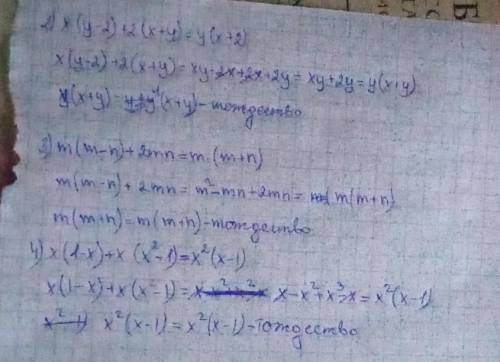 2) x(y-2)+2(x+y)=y(x+2)
x(y-2)+2(x+y)=xy-2x+2x+2y=xy+2y=y(x+y)
y(x+y)=y(x+y)-тождество
3) m(m-n)+2mn=m·(m+n)
m(m-n)+2mn=m²-mn+2mn=m(m+n)
m(m+n)=m(m+n)-тождество
4) x(1-x)+x(x²-1)=x²(x-1)
x(1-x)+x(x²-1)=x-x²+x³-x=x²(x-1)
x²(x-1)=x²(x-1)-тождество